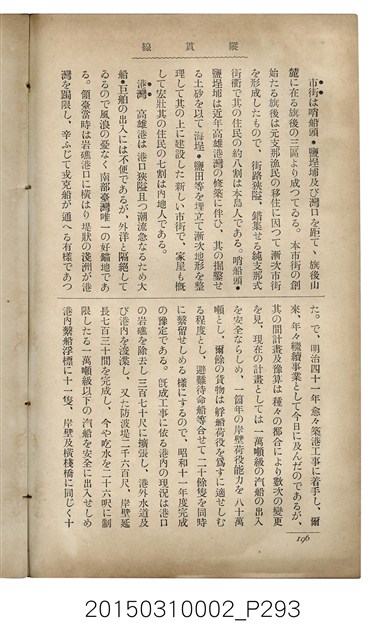 縱貫線
市街は哨船頭・鹽埕埔及び灣口を距て、旗後山
麓に在る旗後の三區より成つてゐる。本市街の創
始たる旗後は元支那漁民の移住に因つて漸次市街
を形成したもので、街路狹隘、錯集せる純支那式
街衢で其の住民の約八割は本島人である。哨船頭・
鹽埕埔は近年高雄港灣の修築に伴ひ、其の掘鑿せ
る土砂を以て海埕・鹽田等を埋立て漸次地形を整
理して其の上に建設した新しい市街で、家屋も概
して宏壯其の住民の七割は内地人である。
港灣 高雄港は港口狹隘且つ潮流急なるため大
船・巨舶の出入には不便であるが、外洋と隔絶して
ゐるので風浪の憂なく南部臺灣唯一の好錨地であ
る。領臺當時は岩礁港口に橫はり堤狀の淺洲が港
灣を跼限し、辛ふじて戎克船が通へる有樣であつ
た。で、明治四十一年愈々築港工事に着手し、爾
來、年々繼續事業として今日に及んだのであるが、
其の間計畫及豫算は種々の都合により數次の變更
を見、現在の計畫としては一萬噸級の汽船の出入
を安全ならしめ、一箇年の岸壁荷役能力を八十萬
噸とし、爾餘の貨物は艀船荷役を爲すに適せしむ
る程度とし、避難待命船等合せて二十餘隻を同時
に繫留せしめる樣にするので、昭和十一年度完成
の豫定である。旣成工事に依る港内の現況は港口
の岩礁を除去し三百七十尺に擴張し、港外水道及
び港内を浚渫し、又た防波堤二千六百尺、岸壁延
長七百三十間を完成し、今や吃水を二十六呎に制
限したる一萬噸級以下の汽船を安全に出入せしめ
港内繫船浮標に十一隻、岸壁及橫棧橋に同じく十
196
20150310002_P293